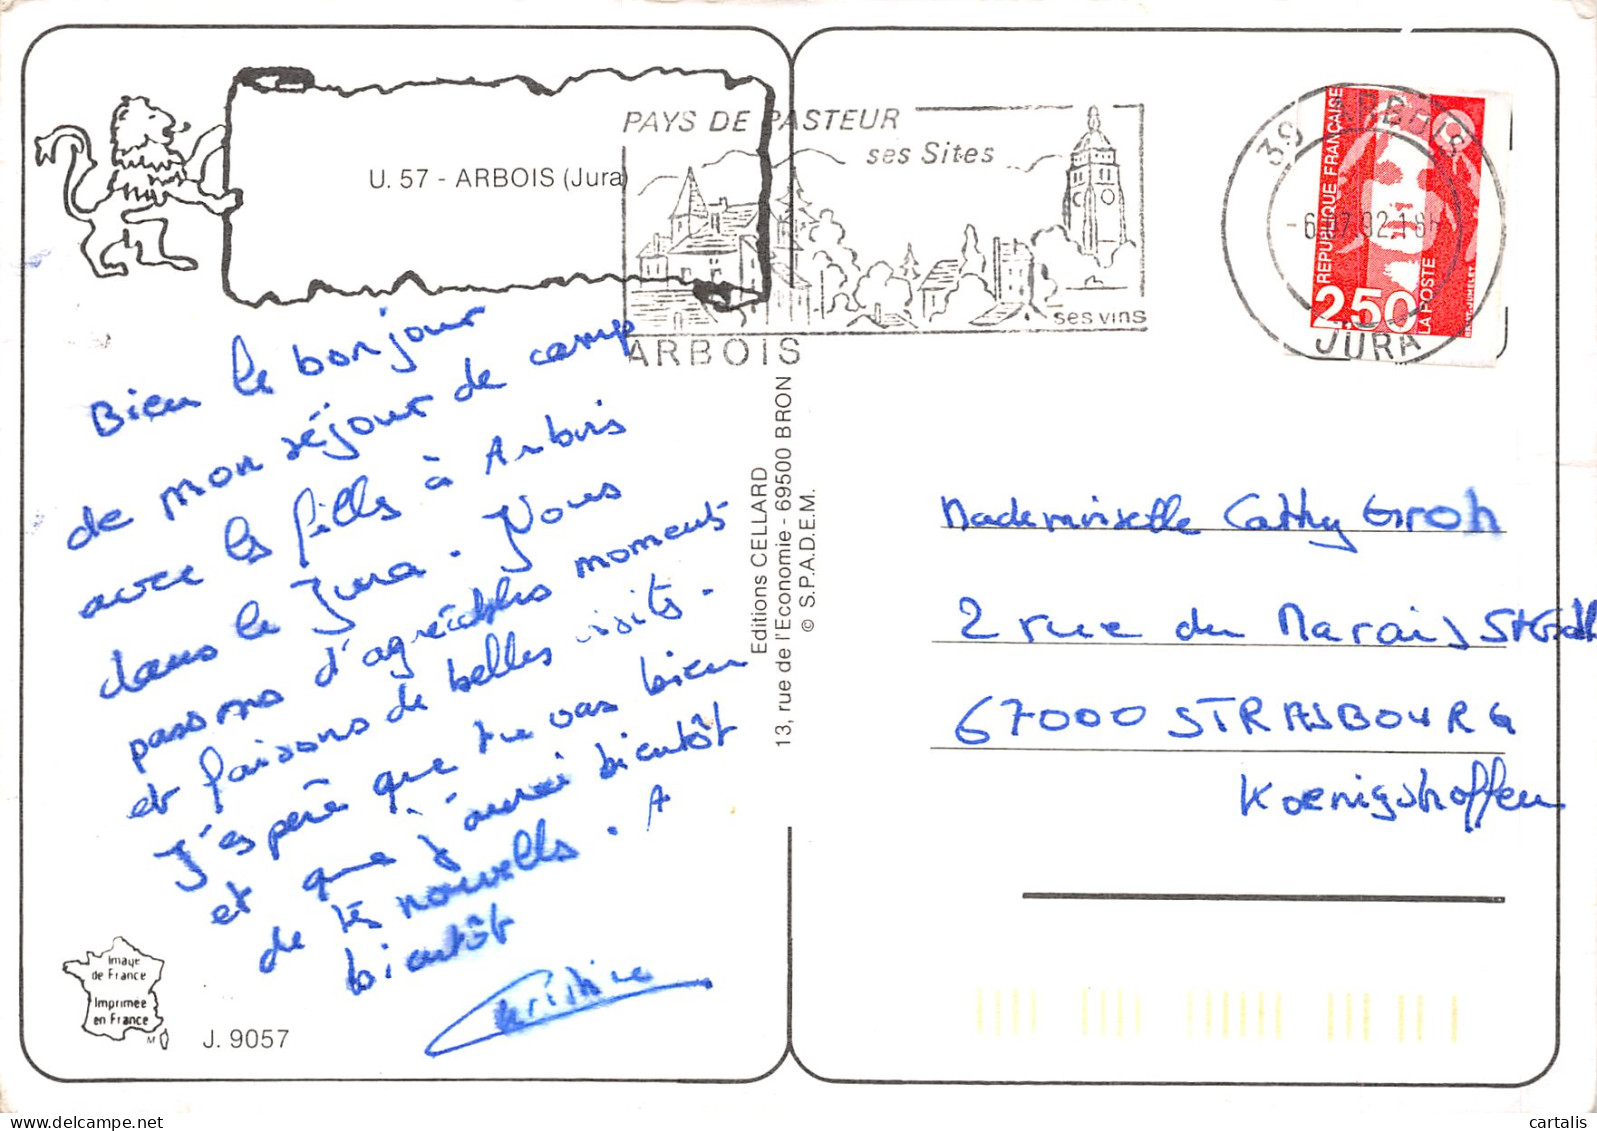 U. 57 - ARBOIS (Jura)
PAYS DE PASTEUR
ses Sites
ses vins
ARBOIS
39 ARBOIS
-6.07.92.18H
JURA
REPUBLIQUE FRANÇAISE
2,50
LA POSTE
Bien le bonjour
de mon séjour de camp
avec les filles à Arbois
dans le Jura. Nous
passons d'agréables moments
et faisons de belles visites.
J'espère que tu vas bien
et que j'aurai bientôt
de tes nouvelles. A
bientôt
Christine
Editions CELLARD
13, rue de l'Economie - 69500 BRON
© S.P.A.D.E.M.
Mademoiselle Cathy Groh
2 rue du Marais
67000 STRASBOURG
Koenigshoffen
Image
de France
Imprimée
en France
M
J. 9057
cartalis